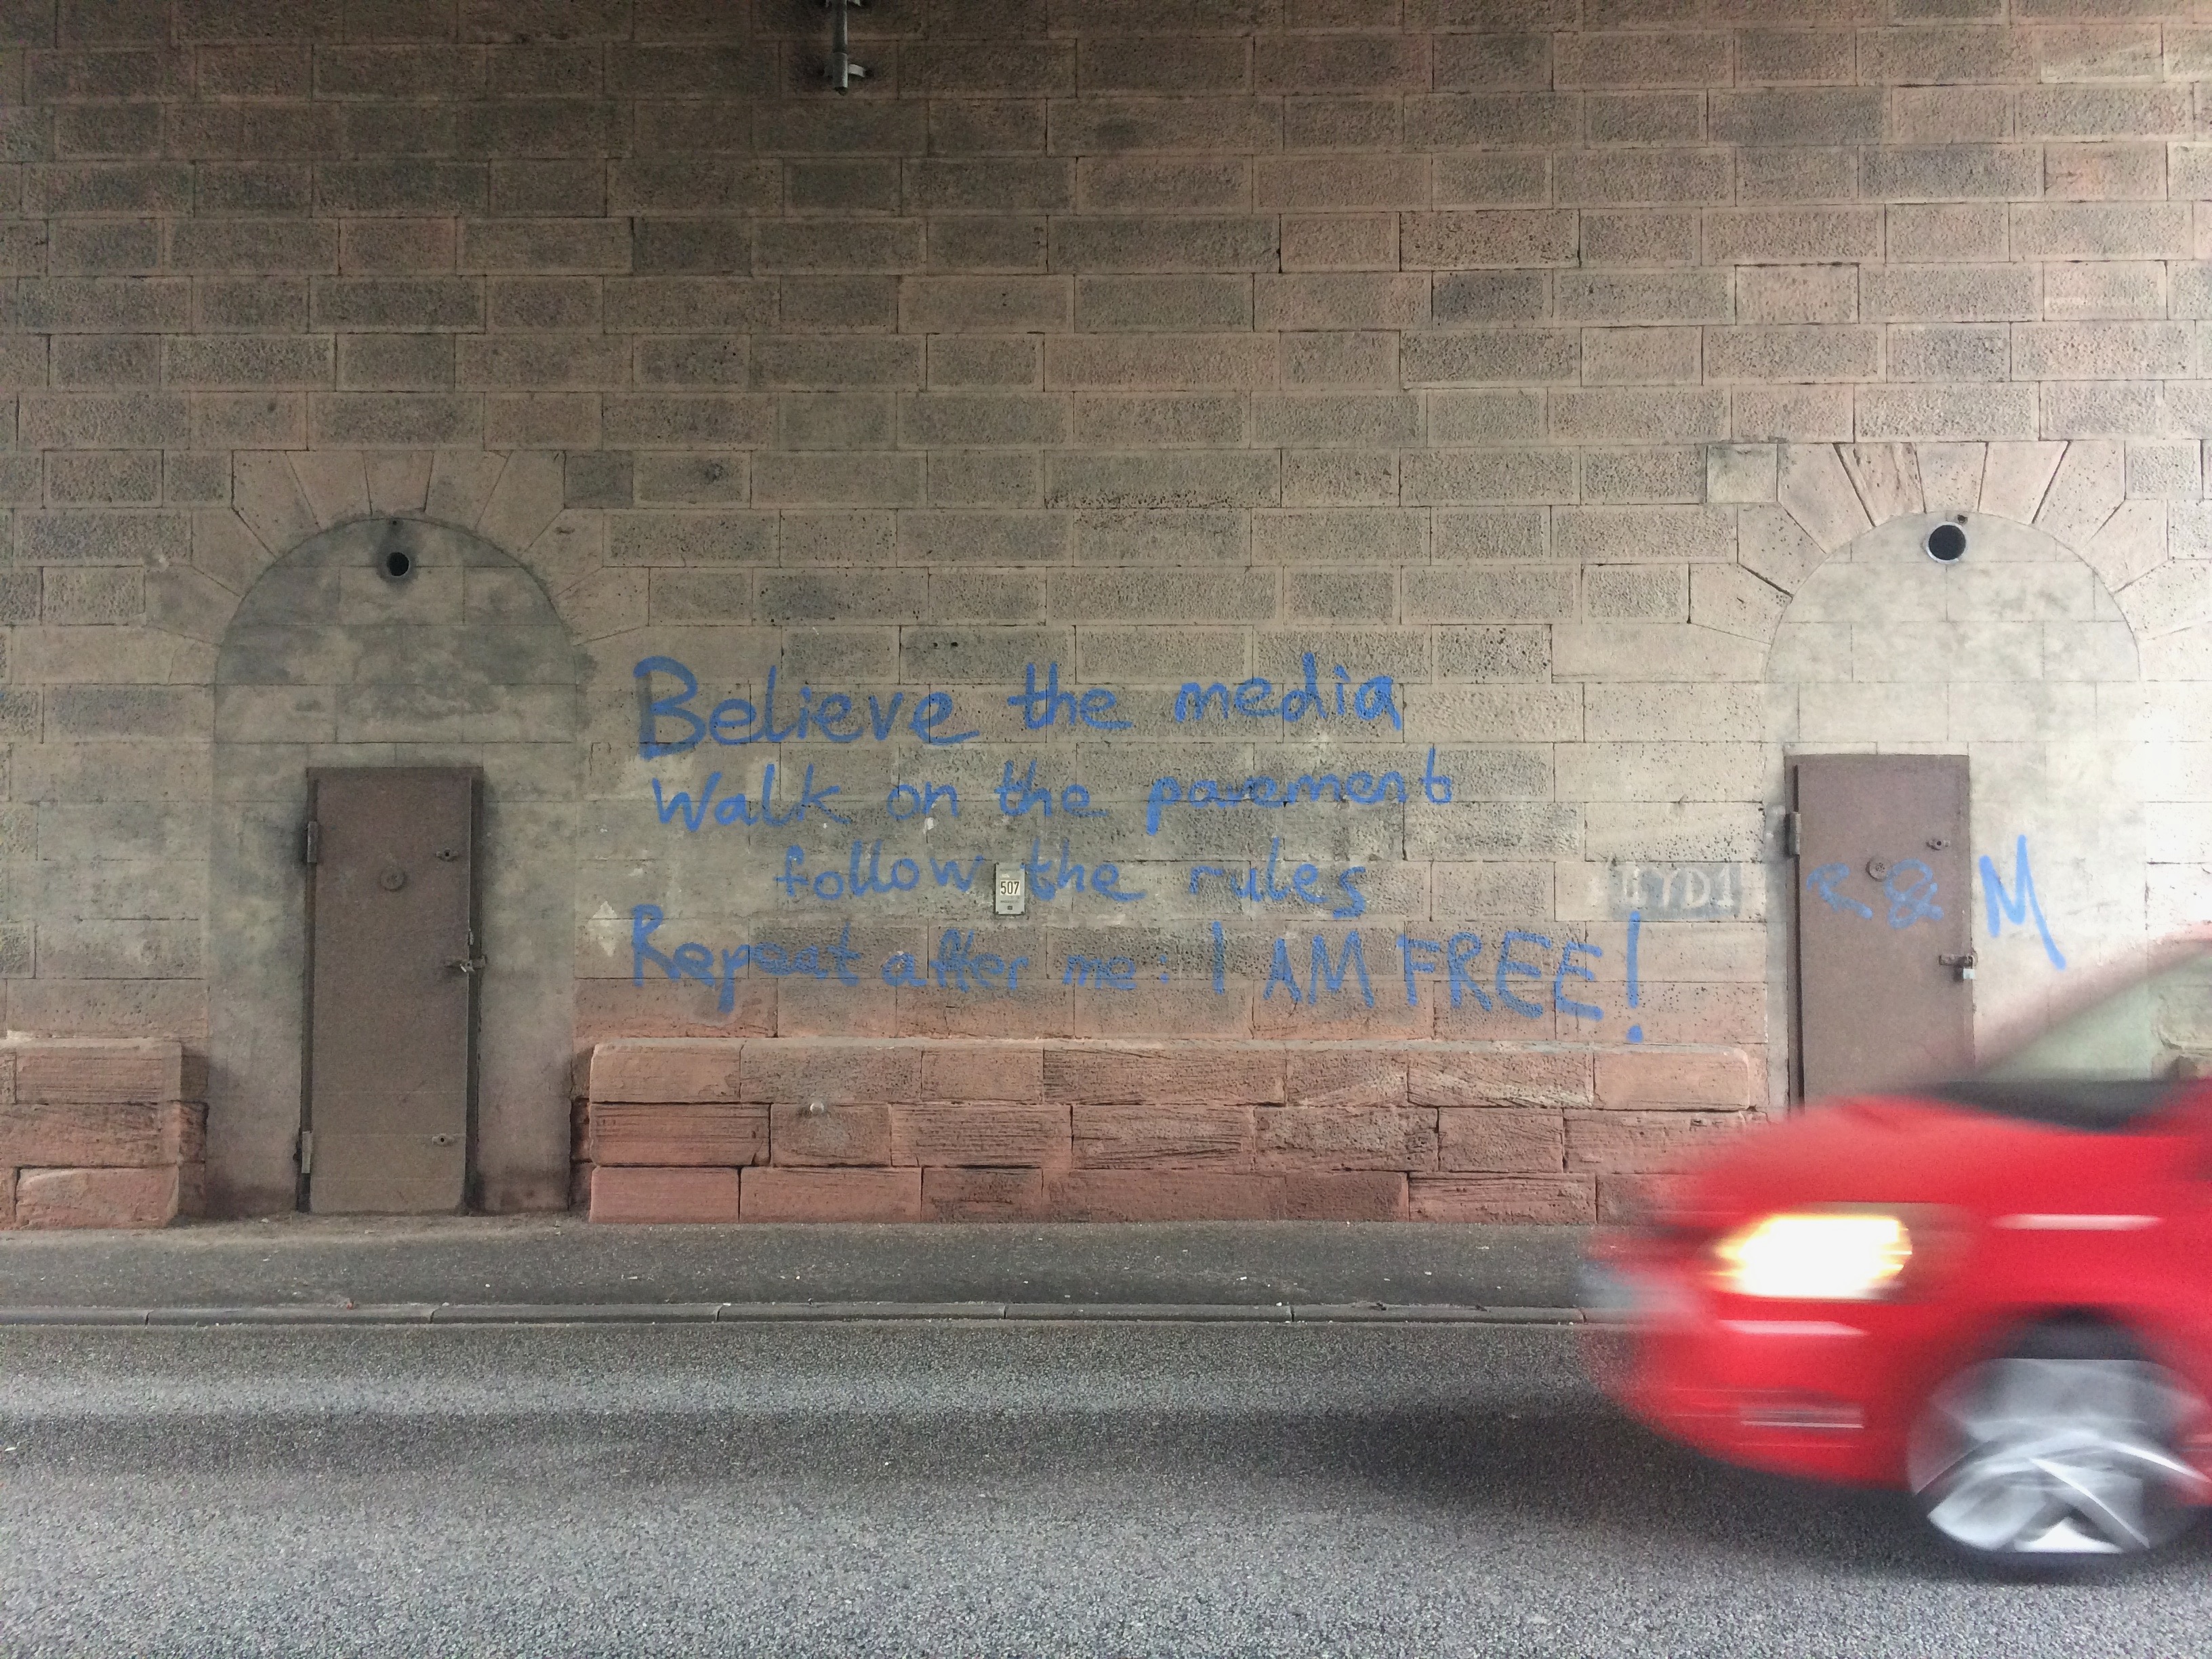 Believe the media
Walk on the pavement
follow the rules
507
Repeat after me: I AM FREE!
& M